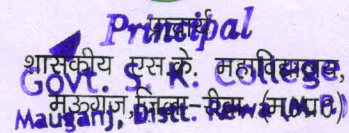 प्राचार्य
Principal
शासकीय एस.के. महाविद्यालय,
Govt. S. K. College
मऊगंज, जिला-रीवा (म.प्र.)
Mauganj, Distt. Rewa (M.P.)